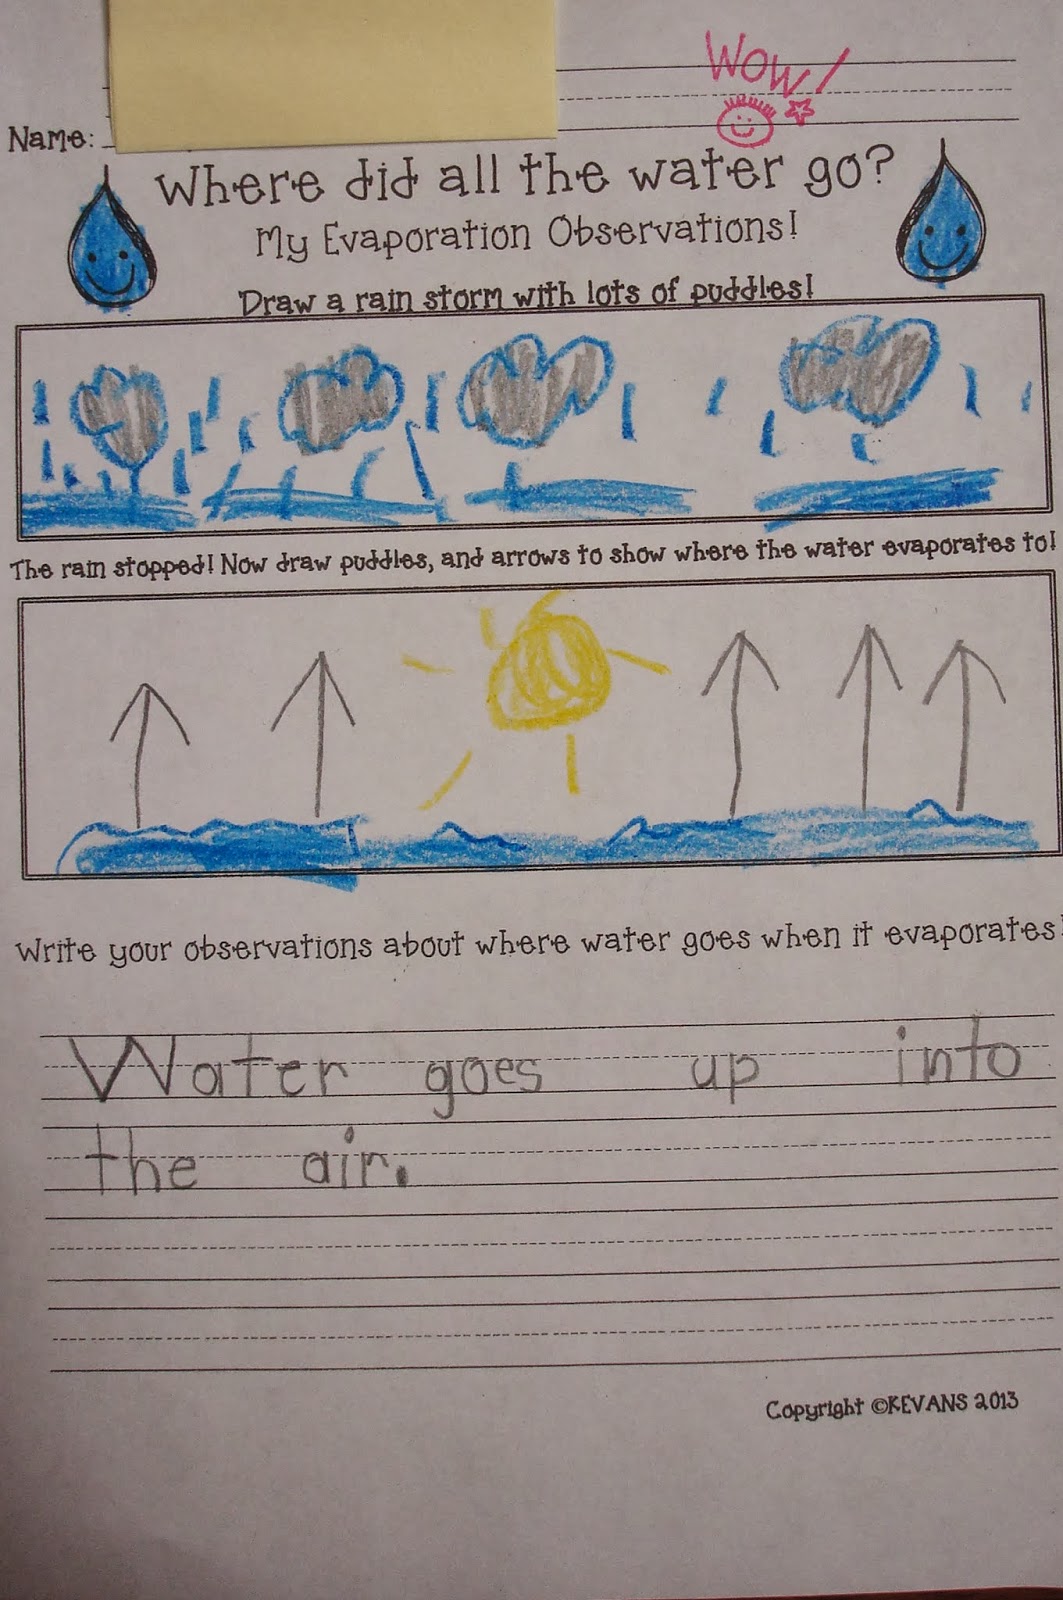 Wow!
Name:
Where did all the water go?
My Evaporation Observations!
Draw a rain storm with lots of puddles!
The rain stopped! Now draw puddles, and arrows to show where the water evaporates to!
Write your observations about where water goes when it evaporates!
Water goes up into
the air.
Copyright ©KEVANS 2013